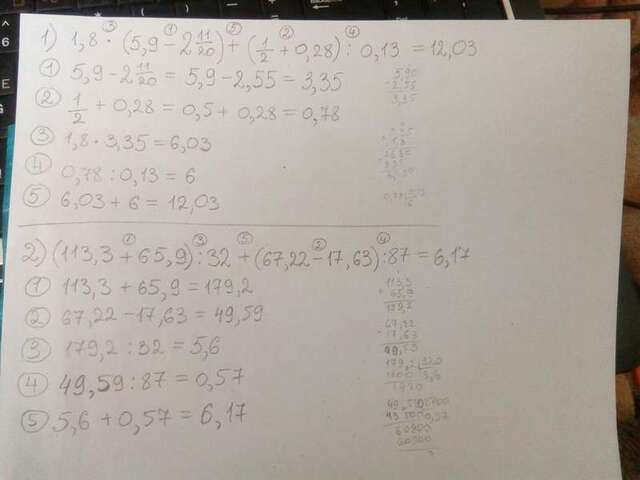 1) 1,8 · (5,9 - 2 11/20) + (1/2 + 0,28) : 0,13 = 12,03
① 5,9 - 2 11/20 = 5,9 - 2,55 = 3,35
② 1/2 + 0,28 = 0,5 + 0,28 = 0,78
③ 1,8 · 3,35 = 6,03
④ 0,78 : 0,13 = 6
⑤ 6,03 + 6 = 12,03
2) (113,3 + 65,9) : 32 + (67,22 - 17,63) : 87 = 6,17
① 113,3 + 65,9 = 179,2
② 67,22 - 17,63 = 49,59
③ 179,2 : 32 = 5,6
④ 49,59 : 87 = 0,57
⑤ 5,6 + 0,57 = 6,17
113,3
65,9
179,2
67,22
17,63
49,59